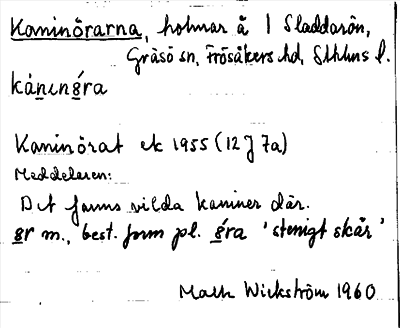 Kaninörarna, holmar å l Sladdarön,
Gräsö sn, Frösåkers hd, Sthlms l.
kánɩnǵra
Kaninörat ek 1955 (12 J 7a)
Meddelaren:
Det fanns vilda kaniner där.
gr m., best. form pl. ǵra 'stenigt skär'
Wickström 1960